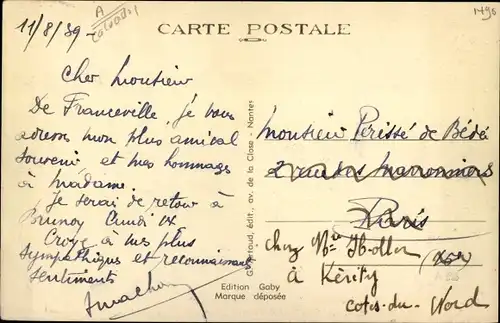 11/8/39
A
Calvados
1490
CARTE POSTALE
Cher Monsieur
De Franceville, je vous
adresse mon plus amical
souvenir et mes hommages
à Madame.
Je serai de retour à
Brunoy Lundi
Croyez à mes plus
sympathiques et reconnaissants
sentiments
édit., av. de la Close - Nantes
Monsieur Périssé de Bédé
2 rue des Marronniers
Paris
chez Mr
à Kérity
Côtes-du-Nord
Edition Gaby
Marque déposée